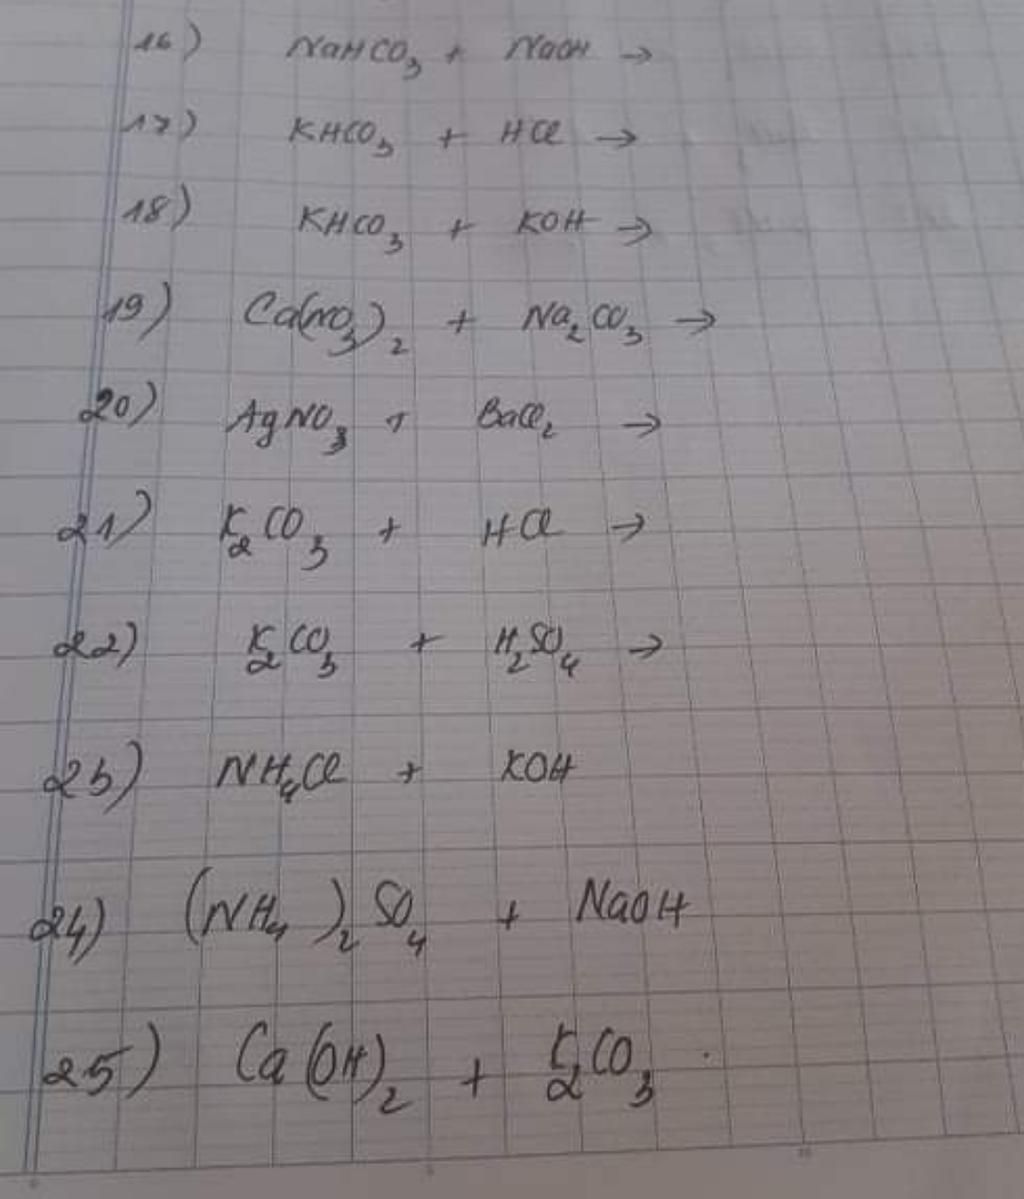 16) NaHCO₃ + NaOH →
17) KHCO₃ + HCl →
18) KHCO₃ + KOH →
19) Ca(NO₃)₂ + Na₂CO₃ →
20) AgNO₃ + BaCl₂ →
21) K₂CO₃ + HCl →
22) K₂CO₃ + H₂SO₄ →
23) NH₄Cl + KOH
24) (NH₄)₂SO₄ + NaOH
25) Ca(OH)₂ + K₂CO₃ .